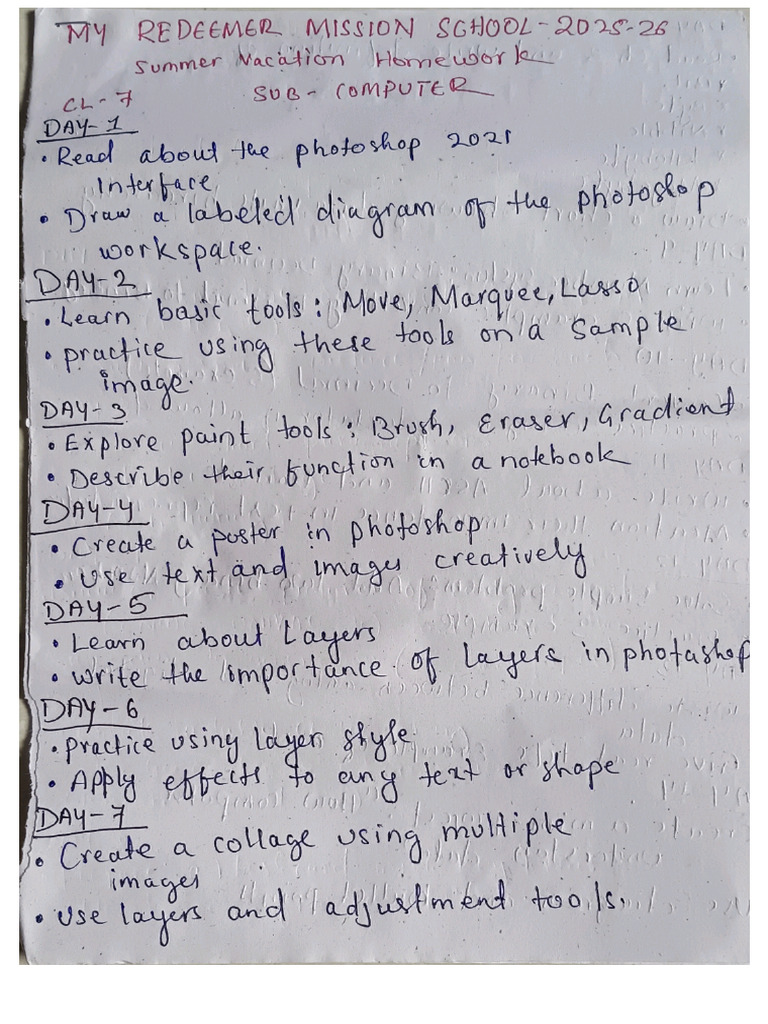 MY REDEEMER MISSION SCHOOL-2025-26
Summer Vacation Homework
CL-7 SUB-COMPUTER
DAY-1
• Read about the photoshop 2021
Interface
• Draw a labeled diagram of the photoshop
workspace.
DAY-2
• Learn basic tools: Move, Marquee, Lasso
• practice using these tools on a sample
image.
DAY-3
• Explore paint tools: Brush, Eraser, Gradient
• Describe their function in a notebook
DAY-4
• Create a poster in photoshop
• Use text and images creatively
DAY-5
• Learn about Layers
• Write the importance of layers in photoshop
DAY-6
• practice using layer style
• Apply effects to any text or shape
DAY-7
• Create a collage using multiple
images
• Use layers and adjustment tools.